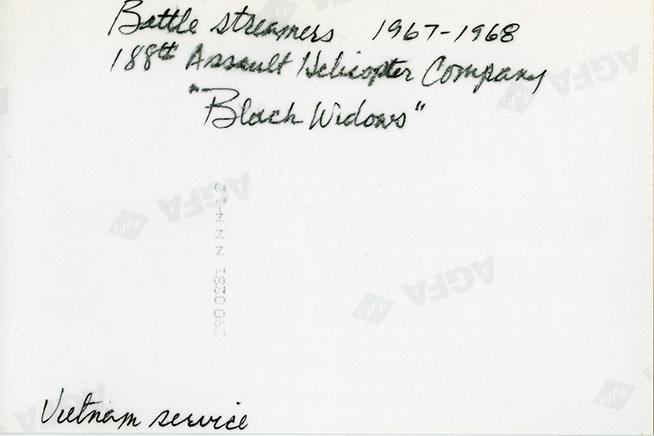 Battle streamers 1967-1968
188th Assault Helicopter Company
"Black Widows"
AGFA
AGFA
AGFA
Vietnam service